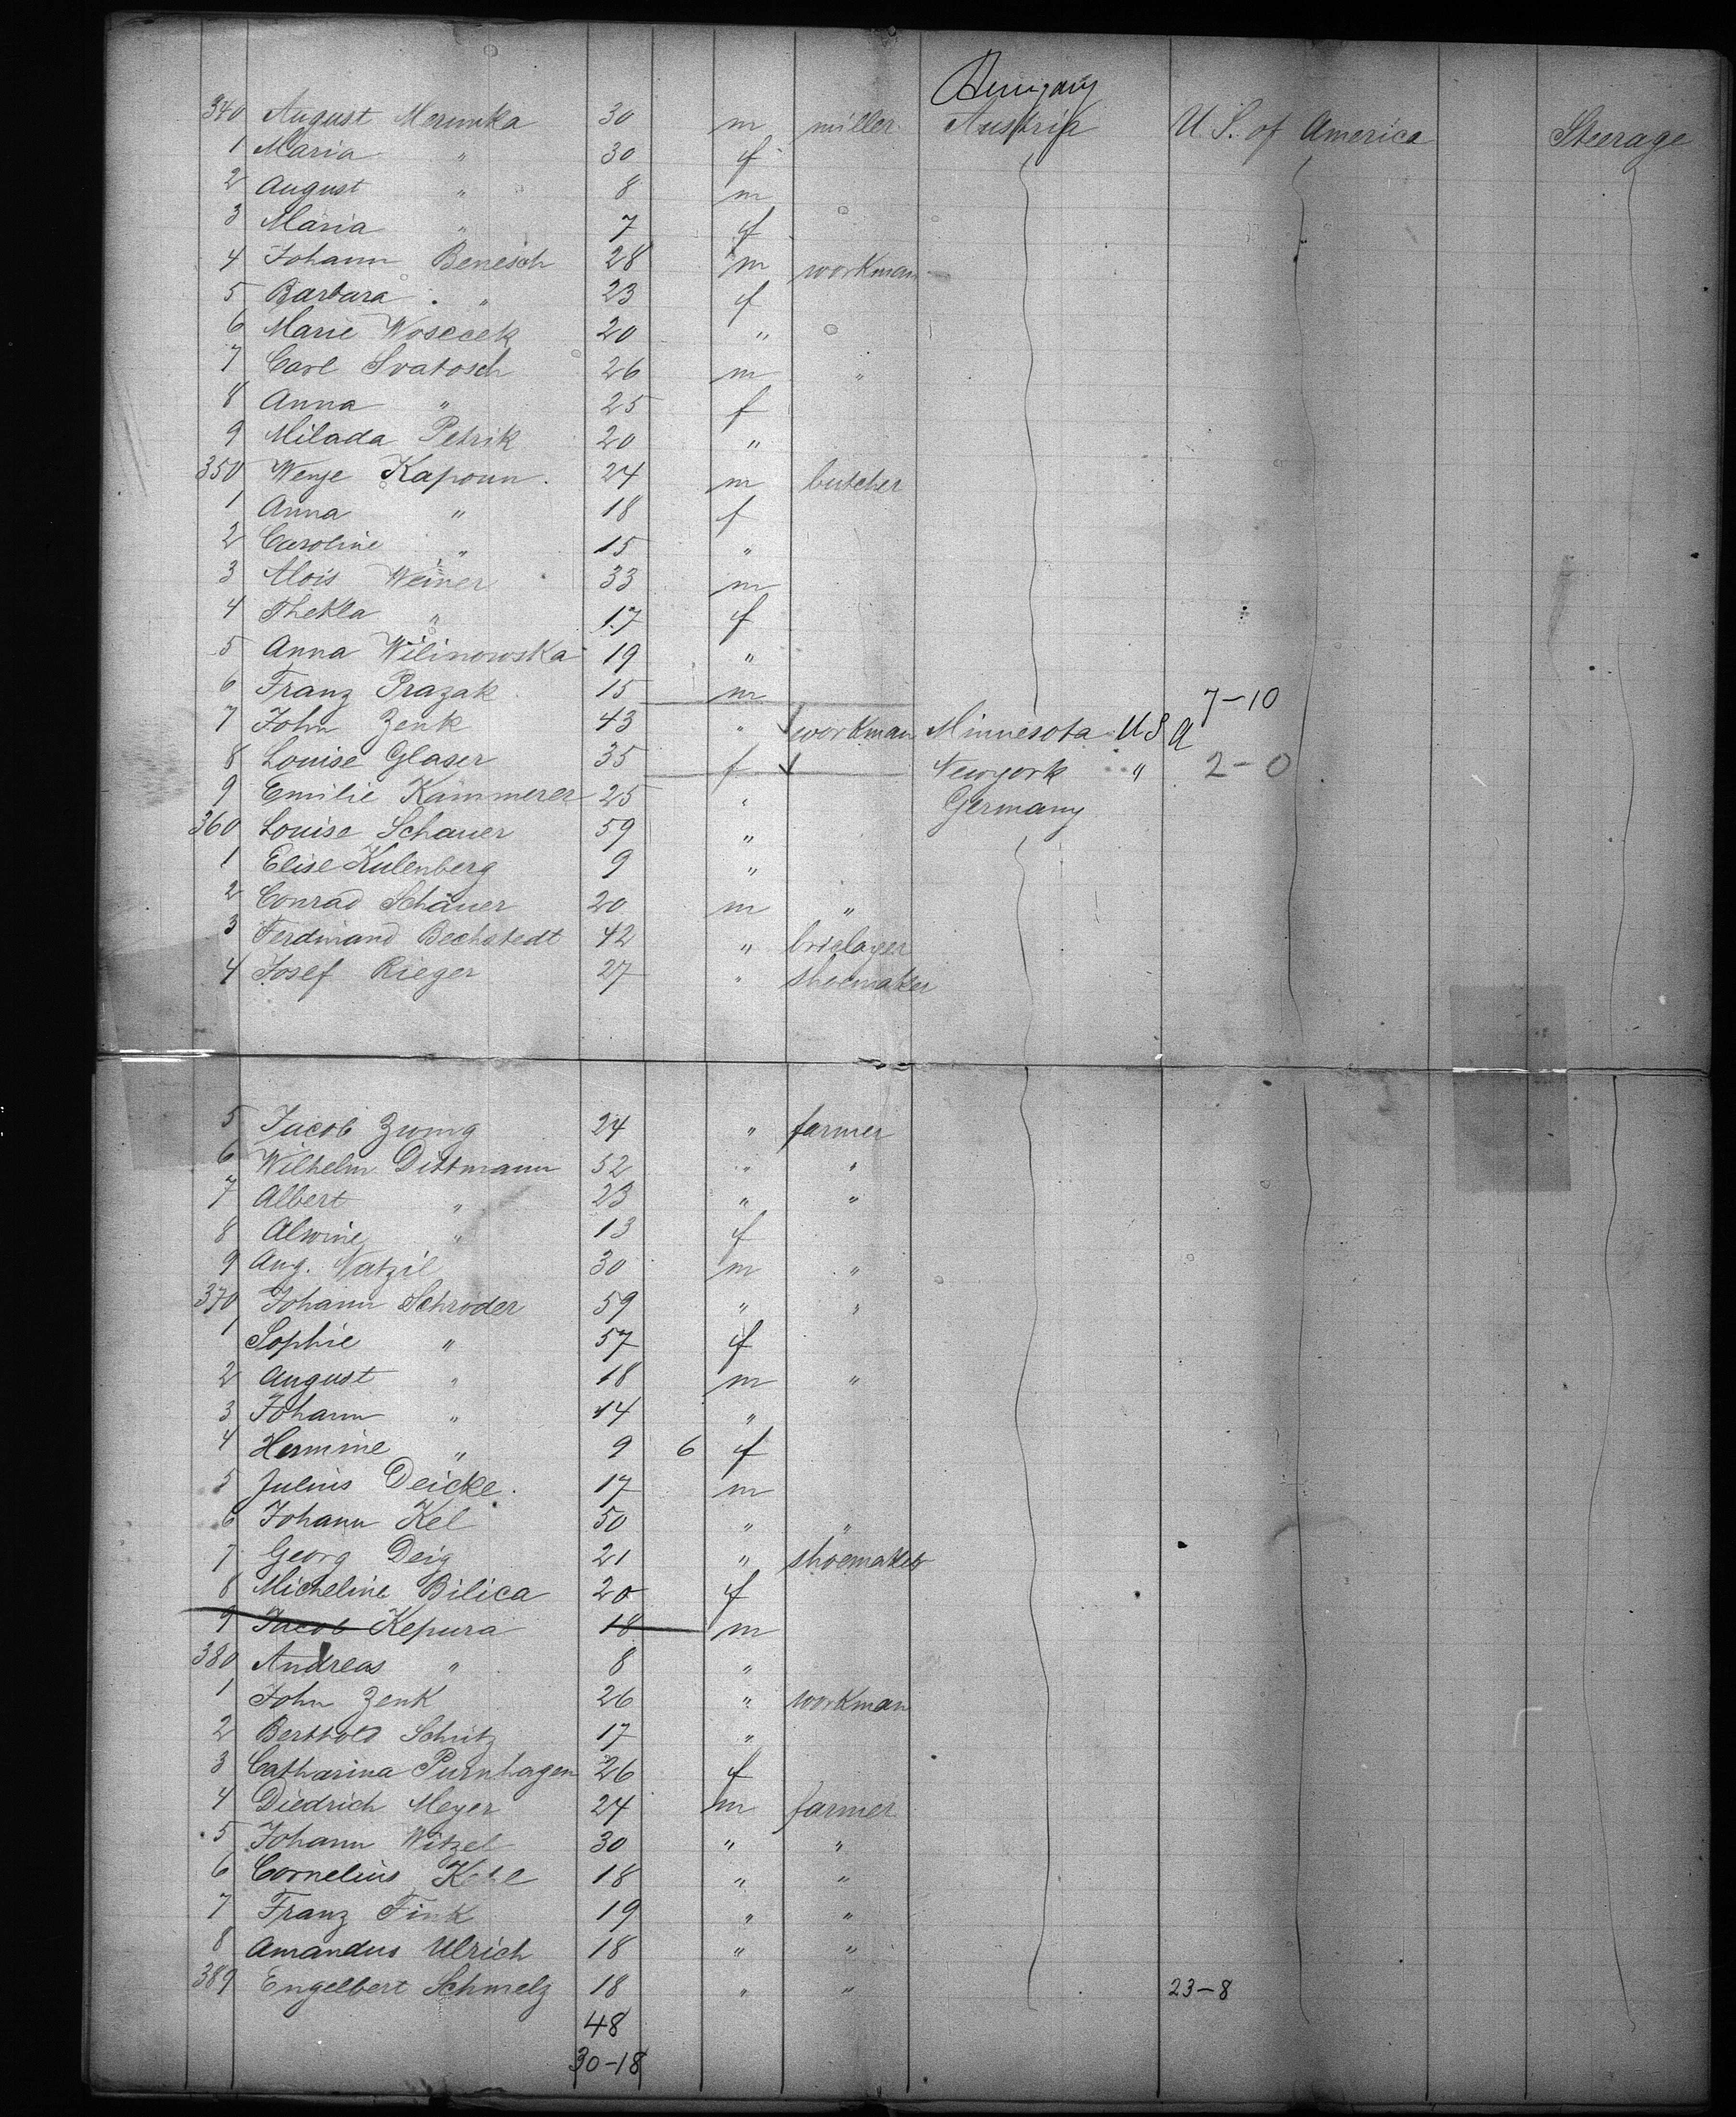 Hungary
340 August Merunka 30 m miller Austria U. S. of America Steerage
1 Maria " 30 f
2 August " 8 m
3 Maria " 7 f
4 Johann Benesch 28 m workman
5 Barbara " 23 f
6 Marie Wosecek 20 "
7 Carl Svatosch 26 m "
8 Anna " 25 f
9 Milada Petrik 20 "
350 Wenze Kapoun 24 m butcher
1 Anna " 18 f
2 Caroline " 15 "
3 Alois Weiner 33 m
4 Thekla " 17 f
5 Anna Wilinowska 19 "
6 Franz Prazak 15 m 7-10
7 John Zenk 43 " workman Minnesota USa
8 Louise Glaser 35 f Newyork " 2-0
9 Emilie Kammerer 25 " Germany
360 Louise Schauer 59 "
1 Elise Kulenberg 9 "
2 Conrad Schäuer 20 m "
3 Ferdinand Bechstedt 42 " briclayer
4 Josef Rieger 27 " shoemaker
5 Jacob Zwing 24 " farmer
6 Wilhelm Dittmann 52 " "
7 Albert " 23 " "
8 Alwine " 13 f
9 Aug. Natzil 30 m "
370 Johann Schröder 59 " "
1 Sophie " 57 f
2 August " 18 m "
3 Johann " 14 "
4 Hermine " 9 6 f
5 Julius Deicke. 17 m
6 Johann Kel 50 " "
7 Georg Deig 21 " shoemaker
8 Micheline Bilica 20 f
9 Jacob Kepura 18 m
380 Andreas " 8 "
1 John Zenk 26 " workman
2 Berthold Schütz 17 "
3 Catharina Purnhagen 26 f
4 Diedrich Meyer 24 m farmer
5 Johann Witzel 30 " "
6 Cornelius 18 " "
7 Franz Fink 19 " "
8 Amandus Ulrich 18 " "
389 Engelbert Schmelz 18 " " 23-8
48
30-18